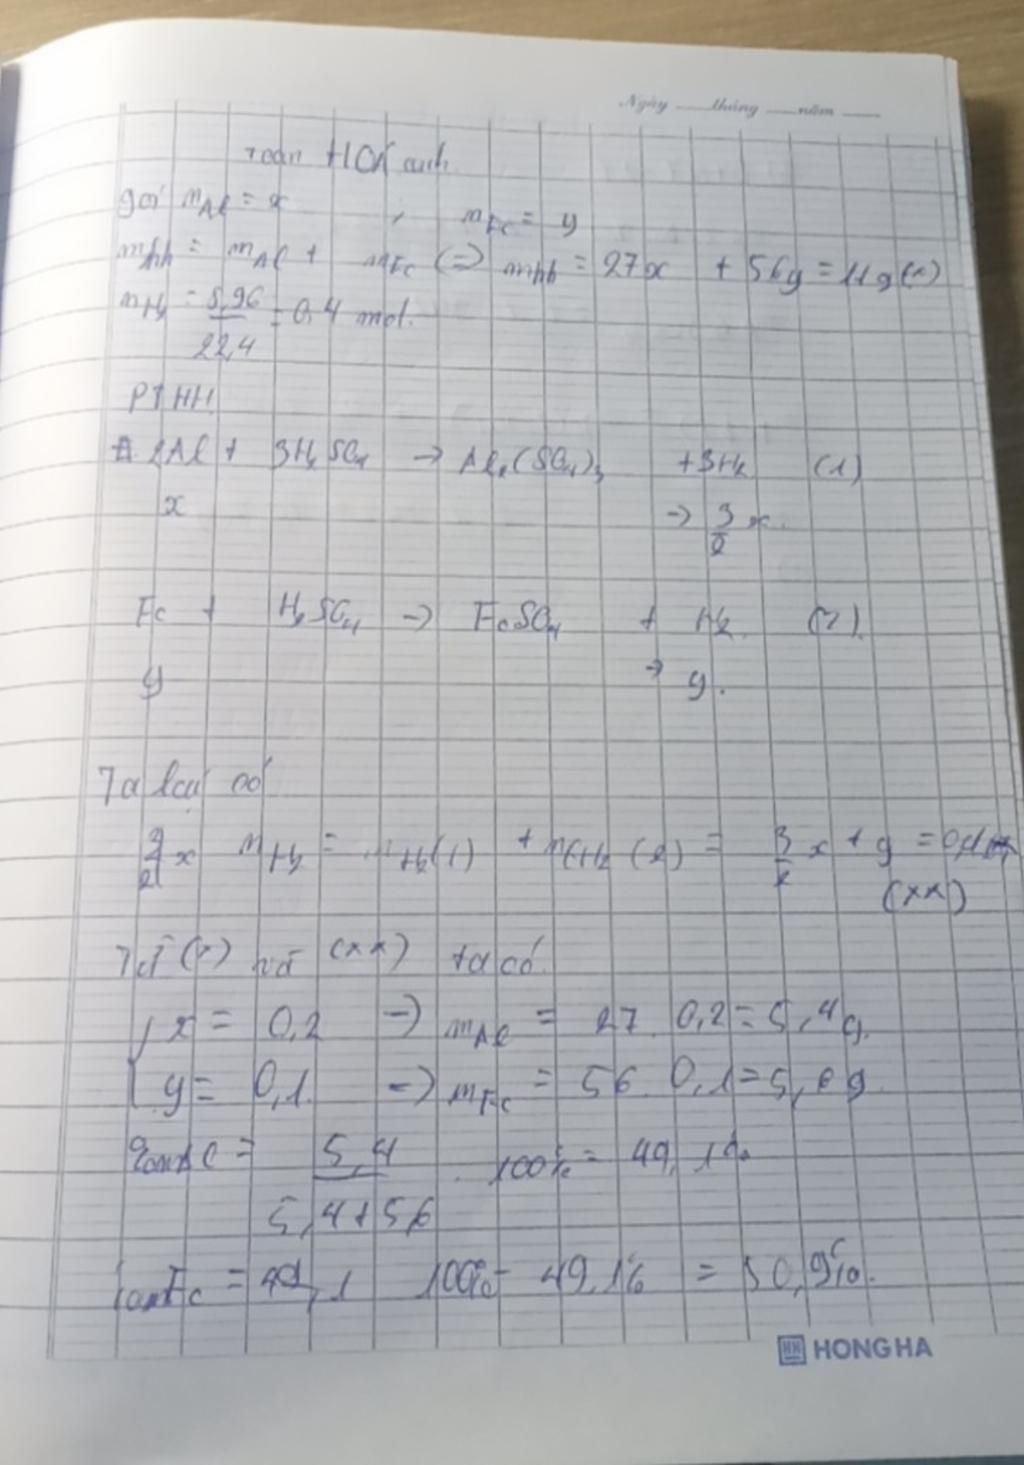 Ngày tháng năm
toán HOÁ anh.
gọi nAl = x , nFe = y
mhh = mAl + mFe (=) mhh = 27x + 56y = 11g (x)
nH₂ = 5,96/22,4 = 0,4 mol.
PTHH
2Al + 3H₂SO₄ → Al₂(SO₄)₃ + 3H₂ (1)
x → 3/2 x.
Fe + H₂SO₄ → FeSO₄ + H₂ (2).
y → y.
Ta lại có
3/2 x nH₂ = nH₂(1) + nH₂(2) = 3/2 x + y = 0,4
(xx)
Từ (x) và (xx) ta có
{ x = 0,2 → mAl = 27. 0,2 = 5,4g.
{ y = 0,1. → mFe = 56. 0,1 = 5,6g
%mAl = 5,4/5,4+5,6 . 100% = 49,1%
%mFe = 100% - 49,1% = 50,9%.
HH HONG HA